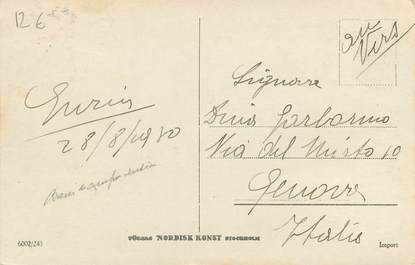 12 6
au
Vers
Signora
Dina Garbarino
Via del Mirto 10
Genova
Italia
28/8/1930
6002/241
FÖRLAG NORDISK KONST STOCKHOLM
Import